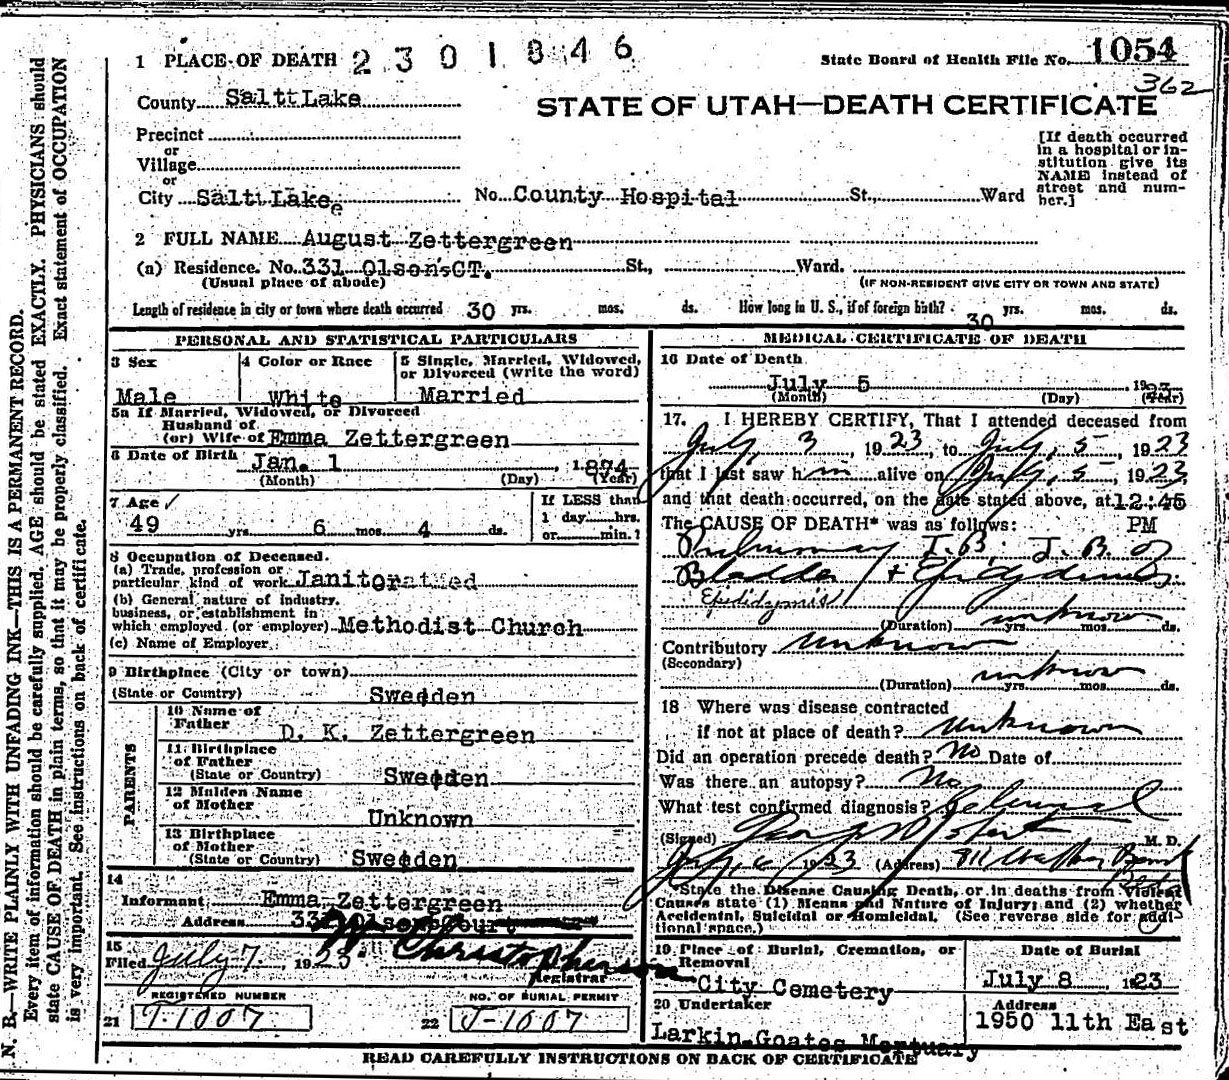 1 PLACE OF DEATH 2301846
State Board of Health File No. 1054
362
County Salt Lake
STATE OF UTAH—DEATH CERTIFICATE
Precinct
or
Village
or
City Salt Lake
No. County Hospital St., Ward
[If death occurred
in a hospital or in-
stitution give its
NAME instead of
street and num-
ber.]
2 FULL NAME August Zettergreen
(a) Residence. No. 331 Olson's CT. St., Ward.
(Usual place of abode)
(IF NON-RESIDENT GIVE CITY OR TOWN AND STATE)
Length of residence in city or town where death occurred 30 yrs. mos. ds. How long in U. S., if of foreign birth? 30 yrs. mos. ds.
PERSONAL AND STATISTICAL PARTICULARS
3 Sex
Male
4 Color or Race
White
5 Single, Married, Widowed,
or Divorced (write the word)
Married
5a If Married, Widowed, or Divorced
Husband of
(or) Wife of Emma Zettergreen
6 Date of Birth
Jan. 1, 1874
(Month) (Day) (Year)
7 Age
49 yrs. 6 mos. 4 ds.
If LESS than
1 day hrs.
or min.?
8 Occupation of Deceased.
(a) Trade, profession or
particular kind of work Janitor
(b) General nature of industry,
business, or establishment in
which employed (or employer) Methodist Church
(c) Name of Employer
9 Birthplace (City or town)
(State or Country) Sweden
PARENTS
10 Name of
Father D. K. Zettergreen
11 Birthplace
of Father
(State or Country) Sweden
12 Maiden Name
of Mother
Unknown
13 Birthplace
of Mother
(State or Country) Sweden
14
Informant Emma Zettergreen
Address 331 Olsons Court
15
Filed July 7, 1923 Christopherson
Registrar
REGISTERED NUMBER
21 J-1007
NO. OF BURIAL PERMIT
22 J-1007
MEDICAL CERTIFICATE OF DEATH
16 Date of Death
July 5 1923
(Month) (Day) (Year)
17. I HEREBY CERTIFY, That I attended deceased from
July, 3, 1923, to July, 5, 1923
that I last saw him alive on July, 5, 1923,
and that death occurred, on the date stated above, at 12:45
The CAUSE OF DEATH* was as follows: PM
Pulmonary T.B. T.B. of
Bladder + Epidydimus
Epididymis
(Duration) unknown yrs. mos. ds.
Contributory unknown
(Secondary)
(Duration) unknown yrs. mos. ds.
18 Where was disease contracted
if not at place of death? unknown
Did an operation precede death? No Date of
Was there an autopsy? No
What test confirmed diagnosis?
(Signed) M. D.
July 6 1923 (Address)
*State the Disease Causing Death, or in deaths from Violent
Causes state (1) Means and Nature of Injury; and (2) whether
Accidental, Suicidal or Homicidal. (See reverse side for addi-
tional space.)
19 Place of Burial, Cremation, or
Removal
City Cemetery
Date of Burial
July 8 1923
20 Undertaker
Larkin-Goates Mortuary
Address
1950 11th East
READ CAREFULLY INSTRUCTIONS ON BACK OF CERTIFICATE
N. B.—WRITE PLAINLY WITH UNFADING INK—THIS IS A PERMANENT RECORD.
Every item of information should be carefully supplied. AGE should be stated EXACTLY. PHYSICIANS should
state CAUSE OF DEATH in plain terms, so that it may be properly classified. Exact statement of OCCUPATION
is very important. See instructions on back of certificate.